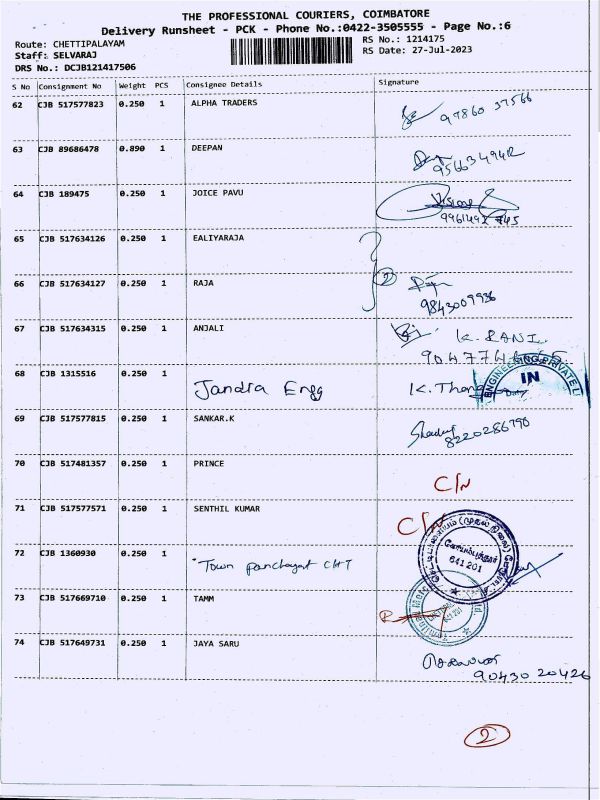 THE PROFESSIONAL COURIERS, COIMBATORE
Delivery Runsheet - PCK - Phone No.:0422-3505555 - Page No.:6
Route: CHETTIPALAYAM RS No.: 1214175
Staff: SELVARAJ RS Date: 27-Jul-2023
DRS No.: DCJB121417506
S No Consignment No Weight PCS Consignee Details Signature
62 CJB 517577823 0.250 1 ALPHA TRADERS
63 CJB 89686478 0.890 1 DEEPAN
64 CJB 189475 0.250 1 JOICE PAVU
65 CJB 517634126 0.250 1 EALIYARAJA
66 CJB 517634127 0.250 1 RAJA 2
9843009936
67 CJB 517634315 0.250 1 ANJALI K. RANI
68 CJB 1315516 0.250 1 Jandra Engg K. Thang
ENGINEERING PRIVATE LI
IN
69 CJB 517577815 0.250 1 SANKAR.K
8220286790
70 CJB 517481357 0.250 1 PRINCE C/N
71 CJB 517577571 0.250 1 SENTHIL KUMAR C/N
72 CJB 1360930 0.250 1 Town panchayat CHT
641 201
73 CJB 517669710 0.250 1 TAMM
74 CJB 517649731 0.250 1 JAYA SARU
90430 20426
2